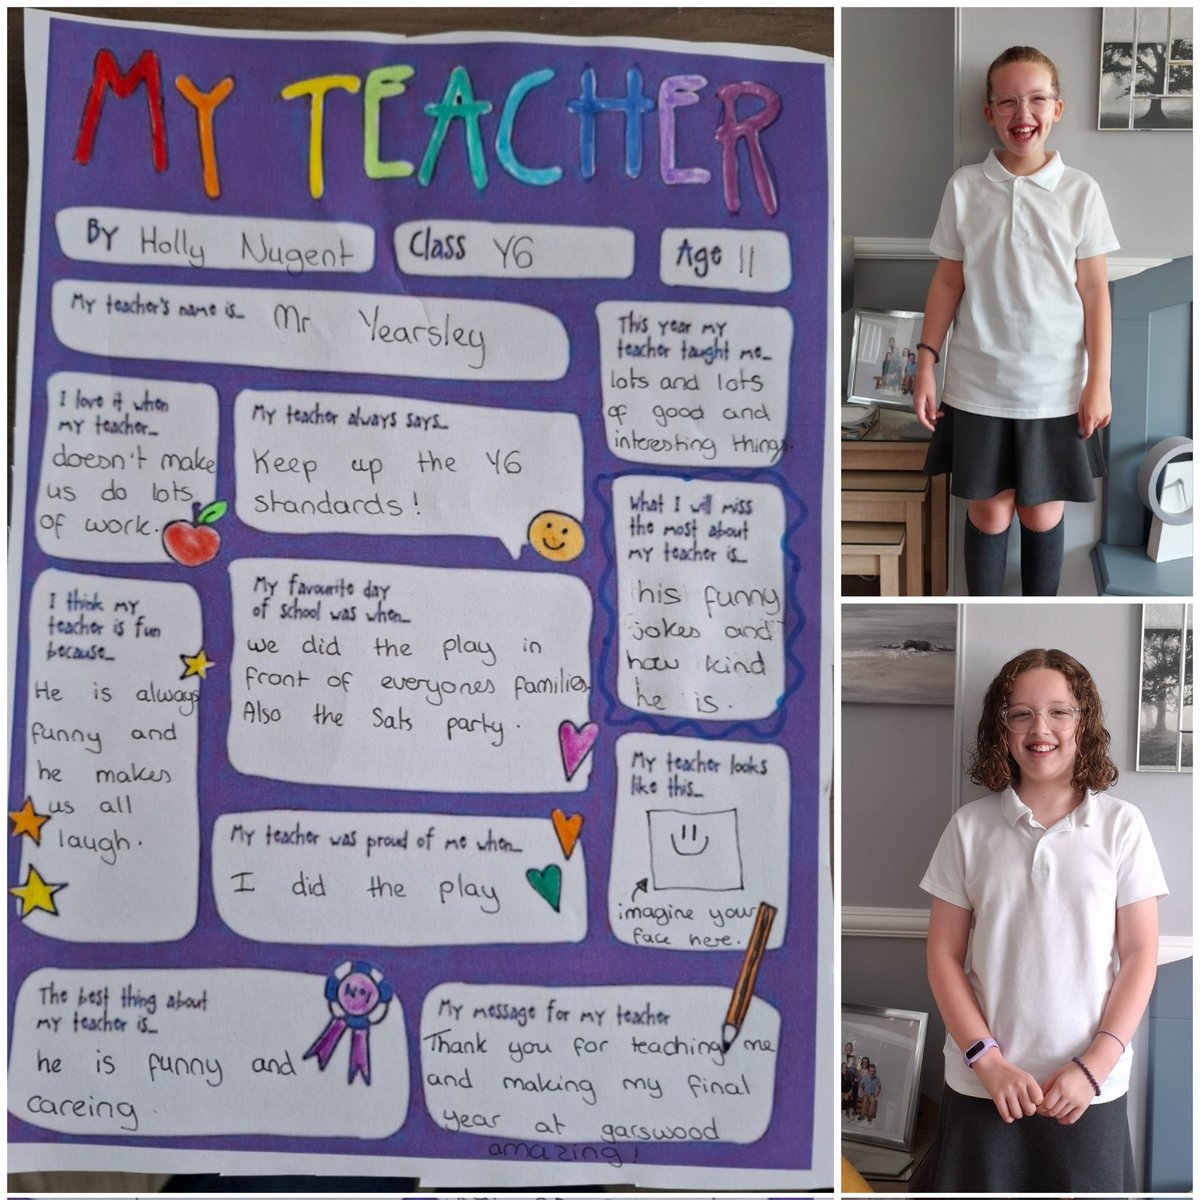 MY TEACHER
By Holly Nugent
Class Y6
Age 11
My teacher's name is... Mr Yearsley
This year my
teacher taught me...
lots and lots
of good and
interesting things.
I love it when
my teacher...
doesn't make
us do lots
of work.
My teacher always says...
Keep up the Y6
standards!
What I will miss
the most about
my teacher is...
his funny
jokes and
how kind
he is.
I think my
teacher is fun
because...
He is always
funny and
he makes
us all
laugh.
My favourite day
of school was when...
we did the play in
front of everyones families.
Also the Sats party.
My teacher looks
like this...
imagine your
face here.
My teacher was proud of me when...
I did the play
The best thing about
my teacher is...
he is funny and
careing.
No.1
My message for my teacher
Thank you for teaching me
and making my final
year at garswood
amazing!